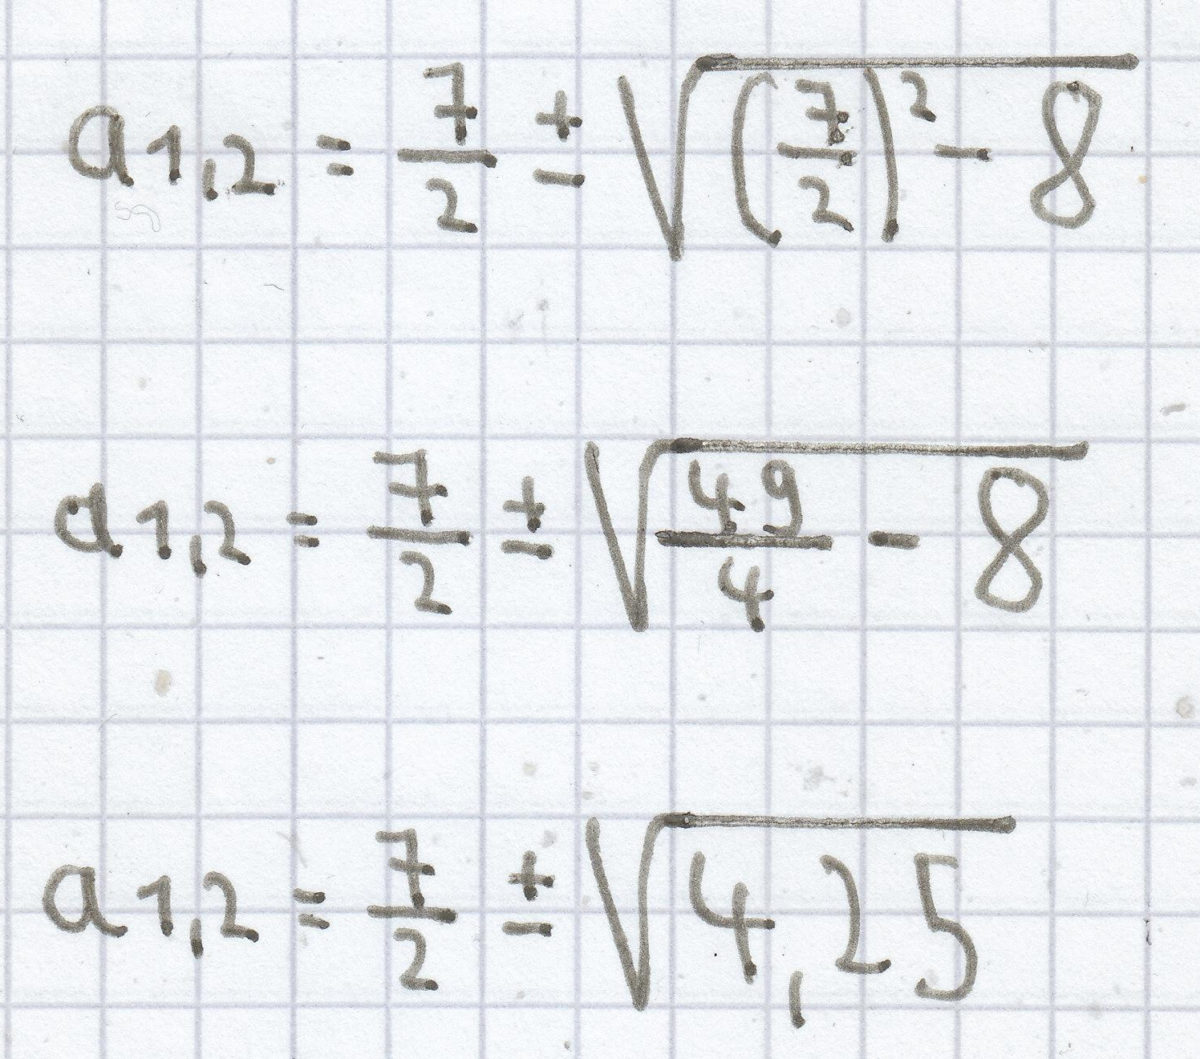 a1,2 = 7/2 ± √((7/2)² - 8)
a1,2 = 7/2 ± √(49/4 - 8)
a1,2 = 7/2 ± √4,25